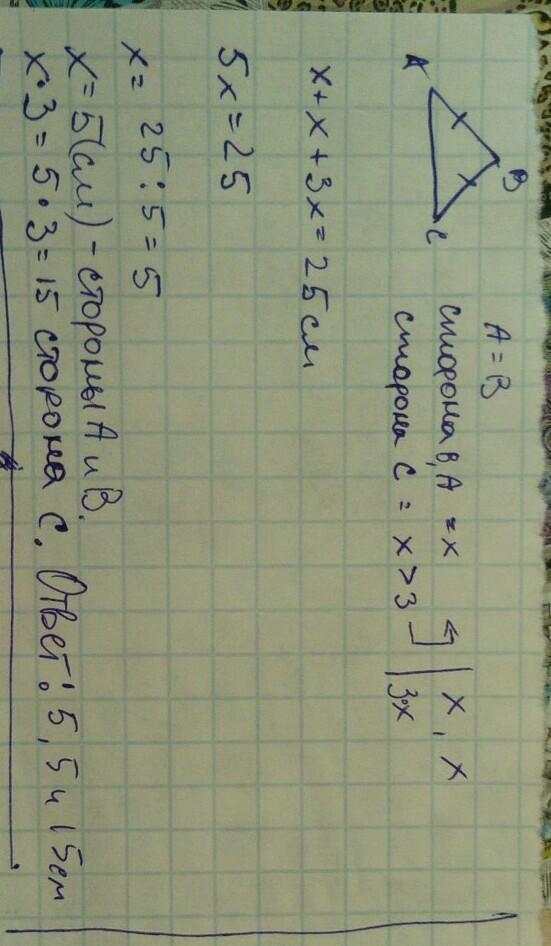 A
B
C
A = B
сторона B, A = x
x, x
сторона C = x > 3
3·x
x + x + 3x = 25 см
5x = 25
x = 25 : 5 = 5
x = 5 (см) - стороны A и B.
x · 3 = 5 · 3 = 15 сторона C. Ответ: 5, 5 и 15 см